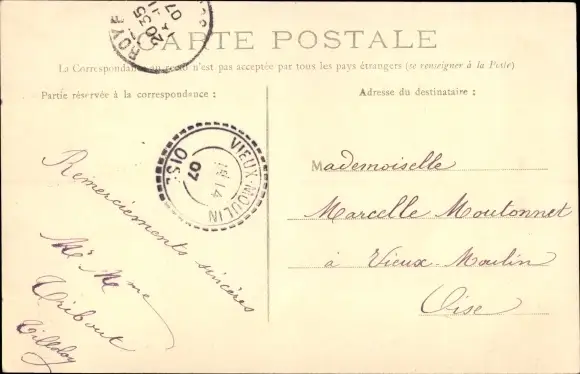 CARTE POSTALE
La Correspondance au recto n'est pas acceptée par tous les pays étrangers (se renseigner à la Poste)
Partie réservée à la correspondance :
Adresse du destinataire :
ROYE
20 35
07
VIEUX-MOULIN
14
07
OISE
Remerciements sincères
Mr Mme
Tribout
Tilloloy
Mademoiselle
Marcelle Moutonnet
à Vieux-Moulin
Oise